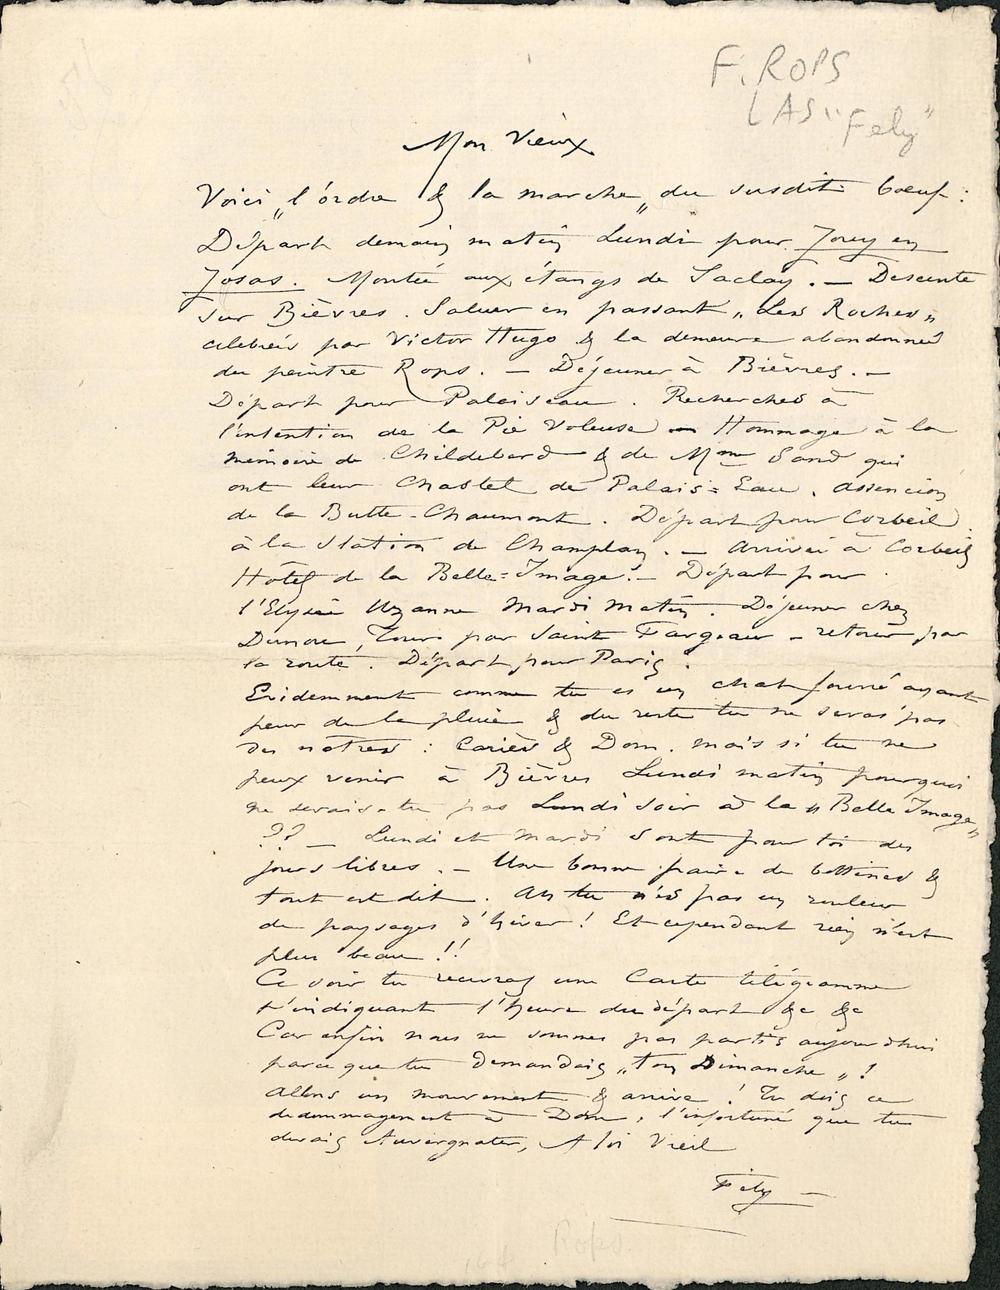 F. ROPS
LAS "Fely"
Mon Vieux
Voici „l'ordre & la marche„ du susdit bœuf :
Départ demain matin Lundi pour Jouy en
Josas. Montée aux étangs de Saclay. — Descente
sur Bièvres. Saluer en passant „Les Roches„
célébrées par Victor Hugo & la demeure abandonnée
du peintre Rops. — Déjeuner à Bièvres. —
Départ pour Palaiseau. Recherches à
l'intention de la Pie Voleuse — Hommage à la
mémoire de Childeberd & de Mme Sand qui
ont leur Chastel de Palais=Eau. Assencion
de la Butte-Chaumont. Départ pour Corbeil
à la Station de Champlan. — Arrivée à Corbeil
Hôtel de la Belle=Image. — Départ pour
l'Elysée Uzanne Mardi matin. Déjeuner chez
Dumou, Tour par Saint Fargeau — retour par
la route. Départ pour Paris.
Evidemment comme tu es un chat fourré ayant
peur de la pluie & du reste tu ne seras pas
des notres : Cariès & Dom. mais si tu ne
peux venir à Bièvres Lundi matin pourquoi
ne serais-tu pas Lundi soir à la „Belle Image„
?? — Lundi et Mardi sont pour toi des
jours libres. — Une bonne paire de bottines &
tout est dit. Ah tu n'es pas un rouleur
de paysages d'hiver ! Et cependant rien n'est
plus beau !!
Ce soir tu recevras une Carte télégramme
t'indiquant l'heure du départ &c &c
Car enfin nous ne sommes pas partis aujourd'hui
parce que tu demandais „ton Dimanche„ !
Allons un mouvement & arrive ! Tu dois ce
dedommagement à Dom, l'infortuné que tu
devais Auvergnater, A toi Vieil
Fély —
Rops.